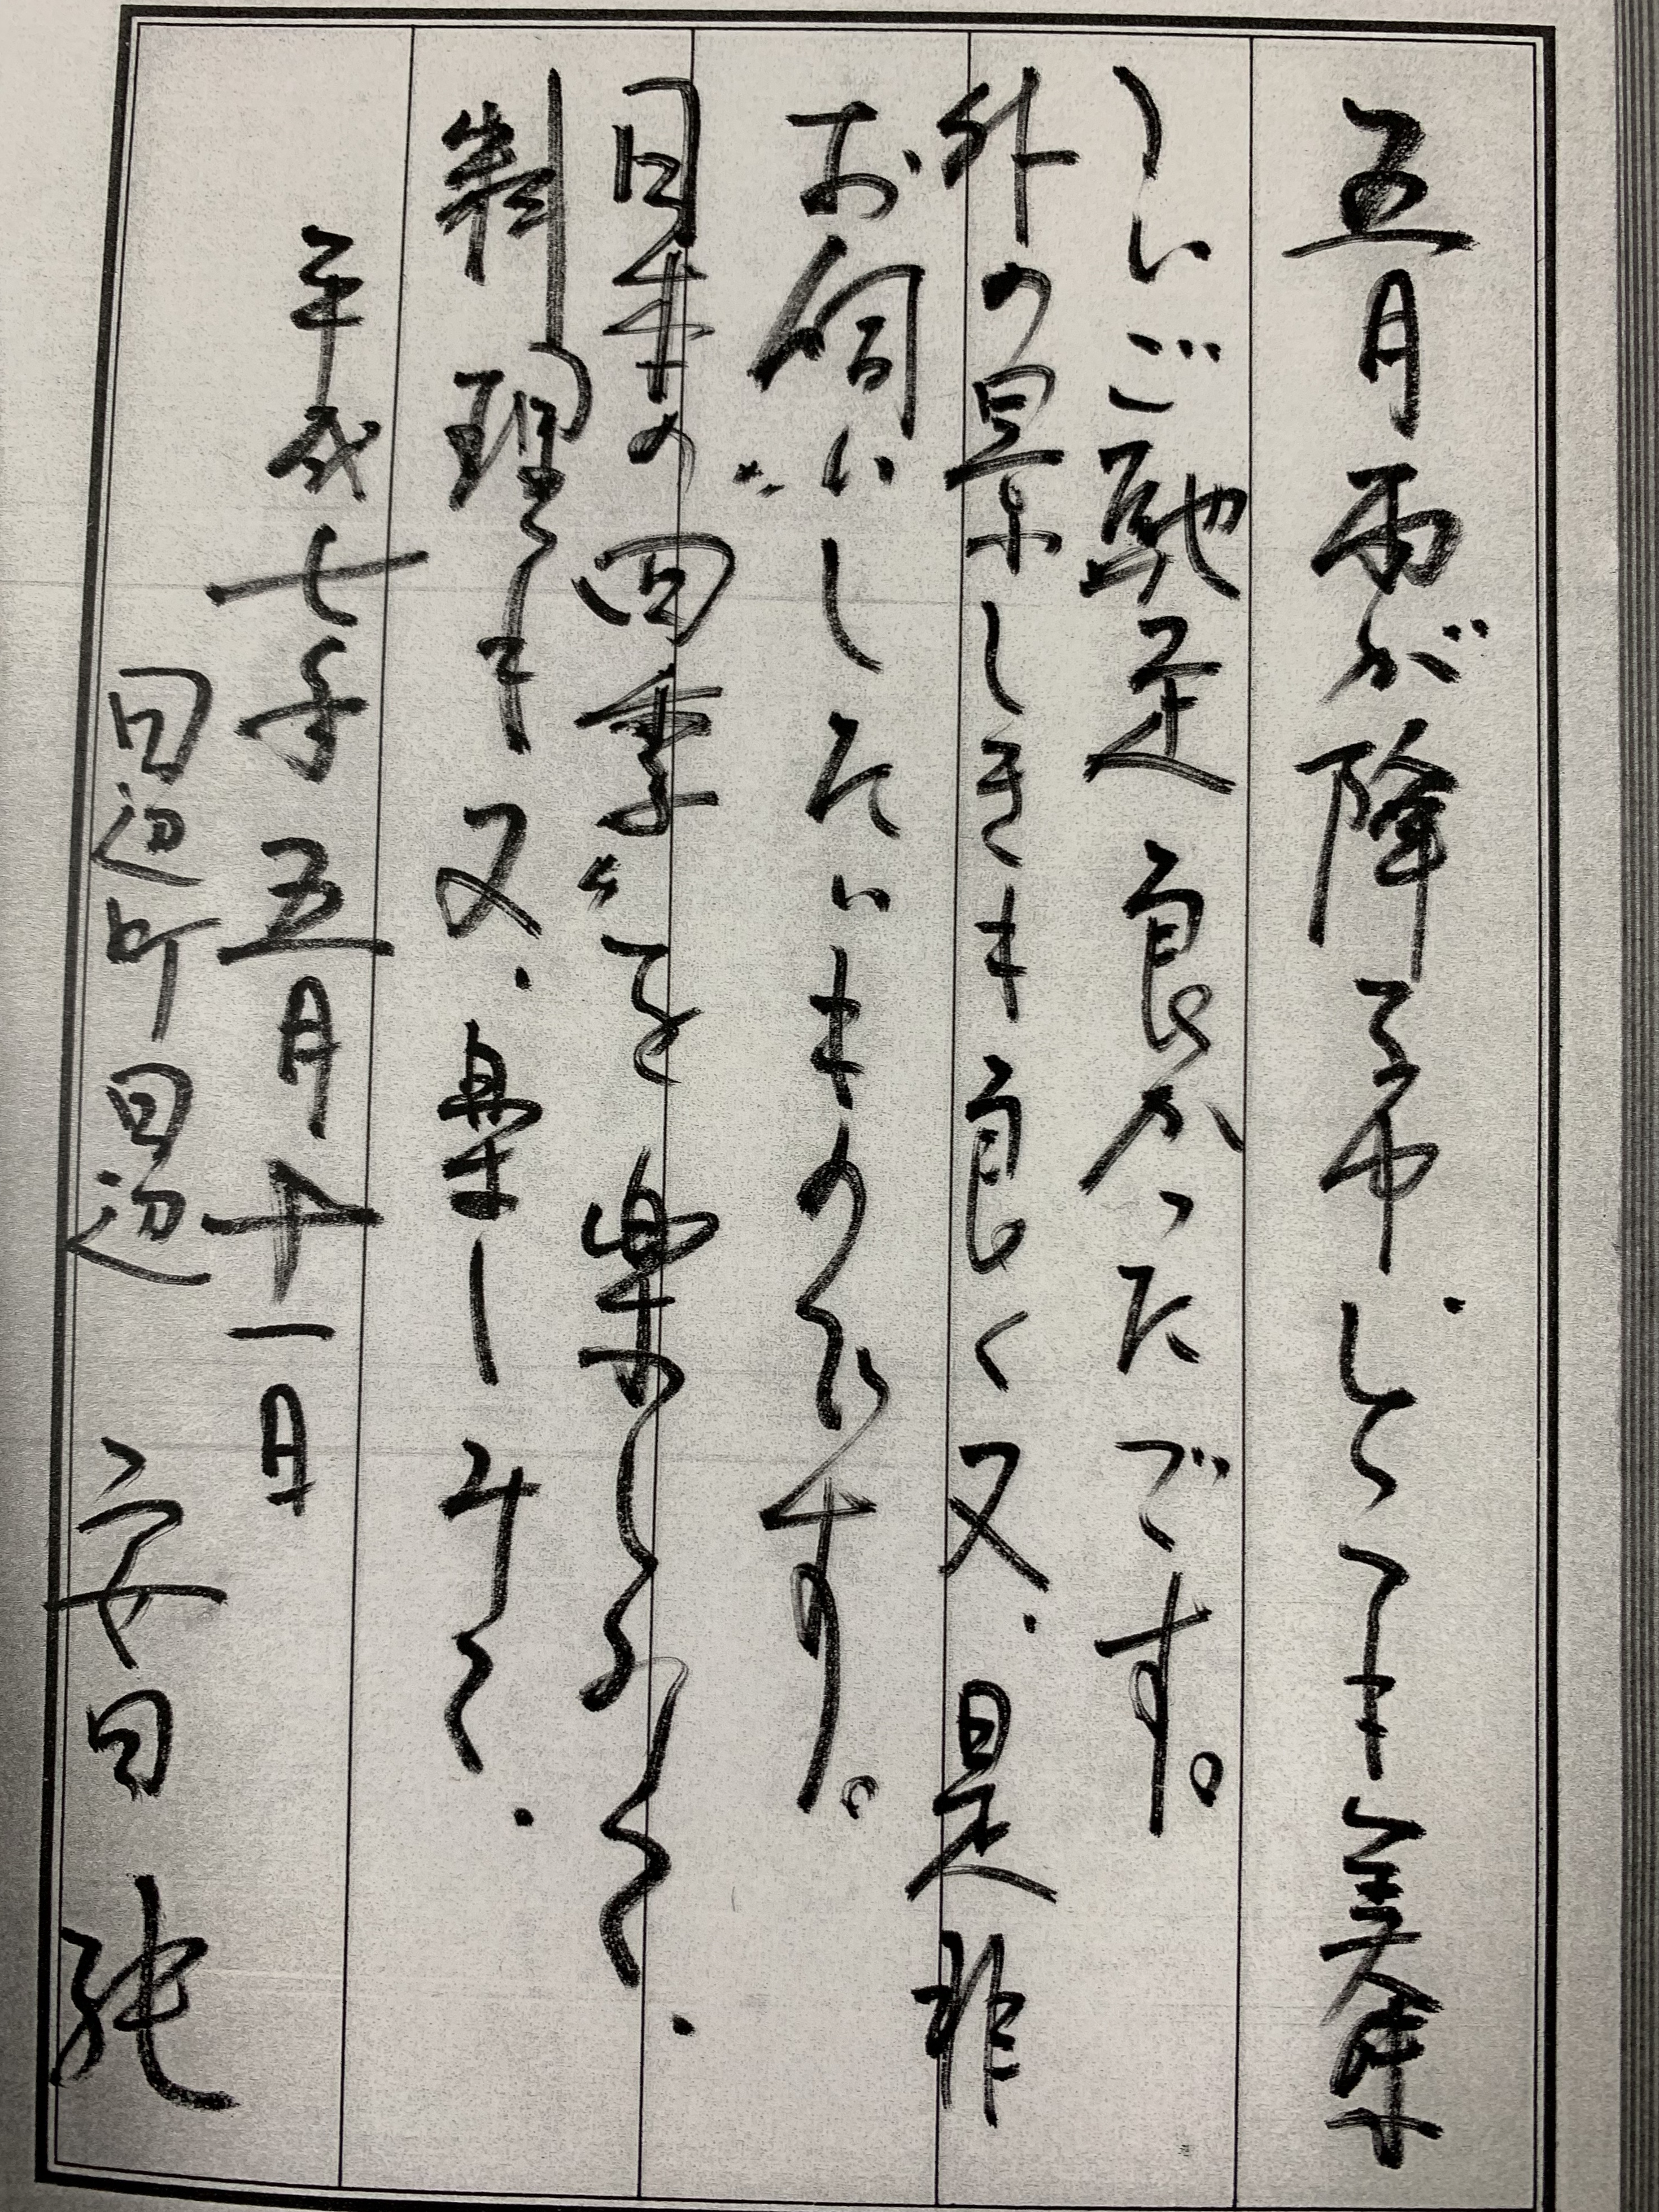 五月雨が降る中、とても美味
しいご馳走良かったです。
外の景しきも良く又、是非
お伺いしたいものです。
日本の〝四季〟を楽しみつつ、
料理も又、楽しみて、
平成七年五月十一日
田辺町田辺 安田 純